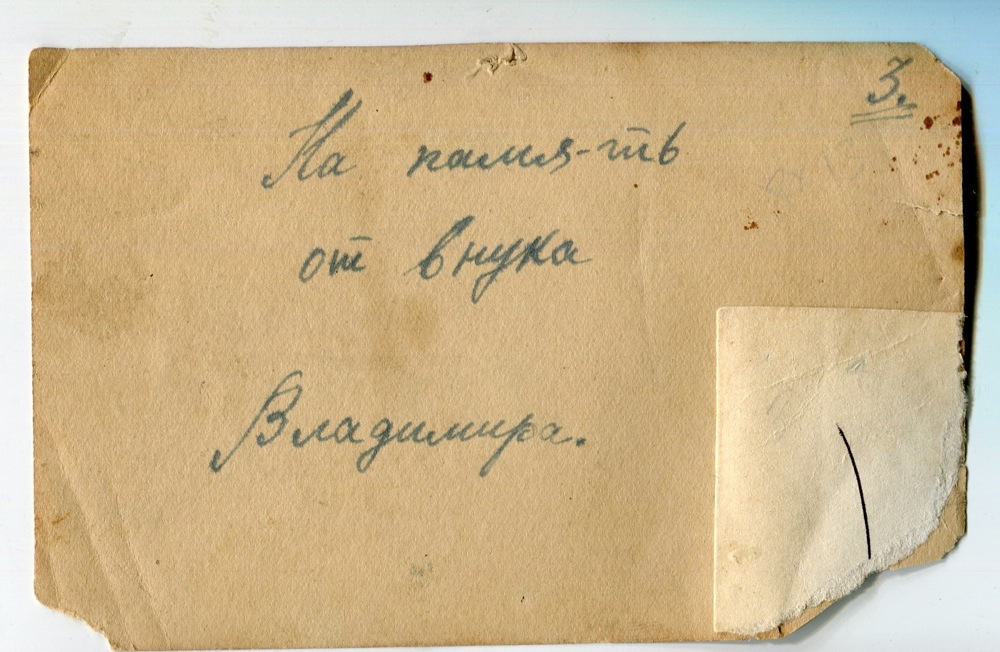 3.
На памя-ть
от внука
Владимира.